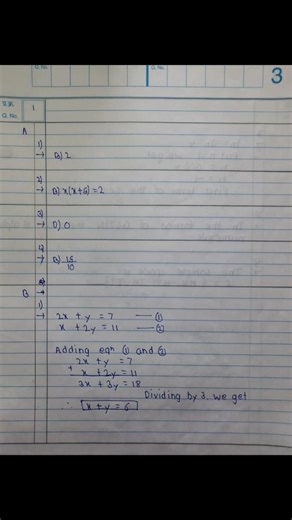 Q. No.
Q. No.
3
Q. No.
1
A
1)
→ B) 2
2)
→ B) x(x+5) = 2
3)
→ D) 0
4)
→ B) 15/10
B
1)
→ 2x + y = 7 — ①
x + 2y = 11 — ②
Adding eqn ① and ②
2x + y = 7
+ x + 2y = 11
3x + 3y = 18
Dividing by 3, we get
∴ x + y = 6